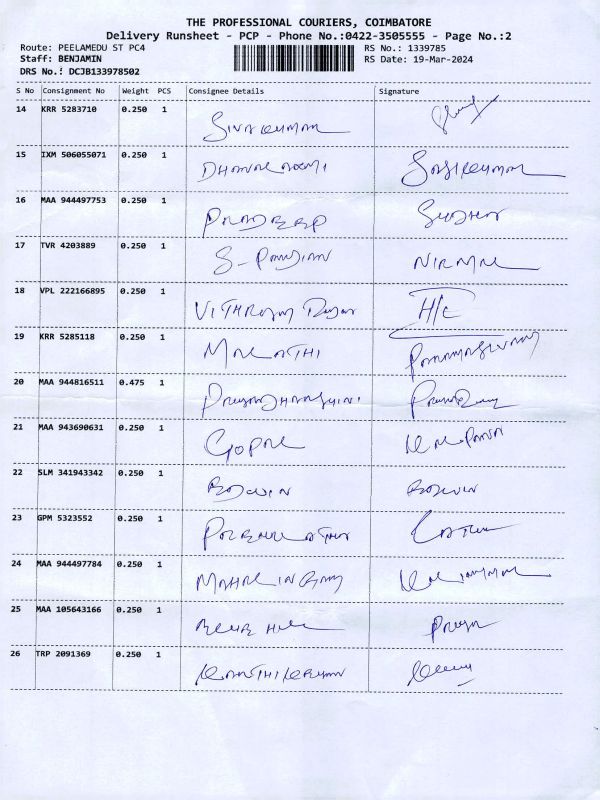 THE PROFESSIONAL COURIERS, COIMBATORE
Delivery Runsheet - PCP - Phone No.:0422-3505555 - Page No.:2
Route: PEELAMEDU ST PC4 RS No.: 1339785
Staff: BENJAMIN RS Date: 19-Mar-2024
DRS No.: DCJB133978502
S No Consignment No Weight PCS Consignee Details Signature
14 KRR 5283710 0.250 1 SIVAKUMAR
15 IXM 506055071 0.250 1 SASIKUMAR
16 MAA 944497753 0.250 1 PRADEEP
17 TVR 4203889 0.250 1 S- PANDIAN NIRMAL
18 VPL 222166895 0.250 1 H/C
19 KRR 5285118 0.250 1 MALATHI
20 MAA 944816511 0.475 1 PRIYADHARSHINI
21 MAA 943690631 0.250 1 GOPAL KALPANA
22 SLM 341943342 0.250 1
23 GPM 5323552 0.250 1
24 MAA 944497784 0.250 1 MAHALINGAM
25 MAA 105643166 0.250 1 PRIYA
26 TRP 2091369 0.250 1 KARTHIKEYAN